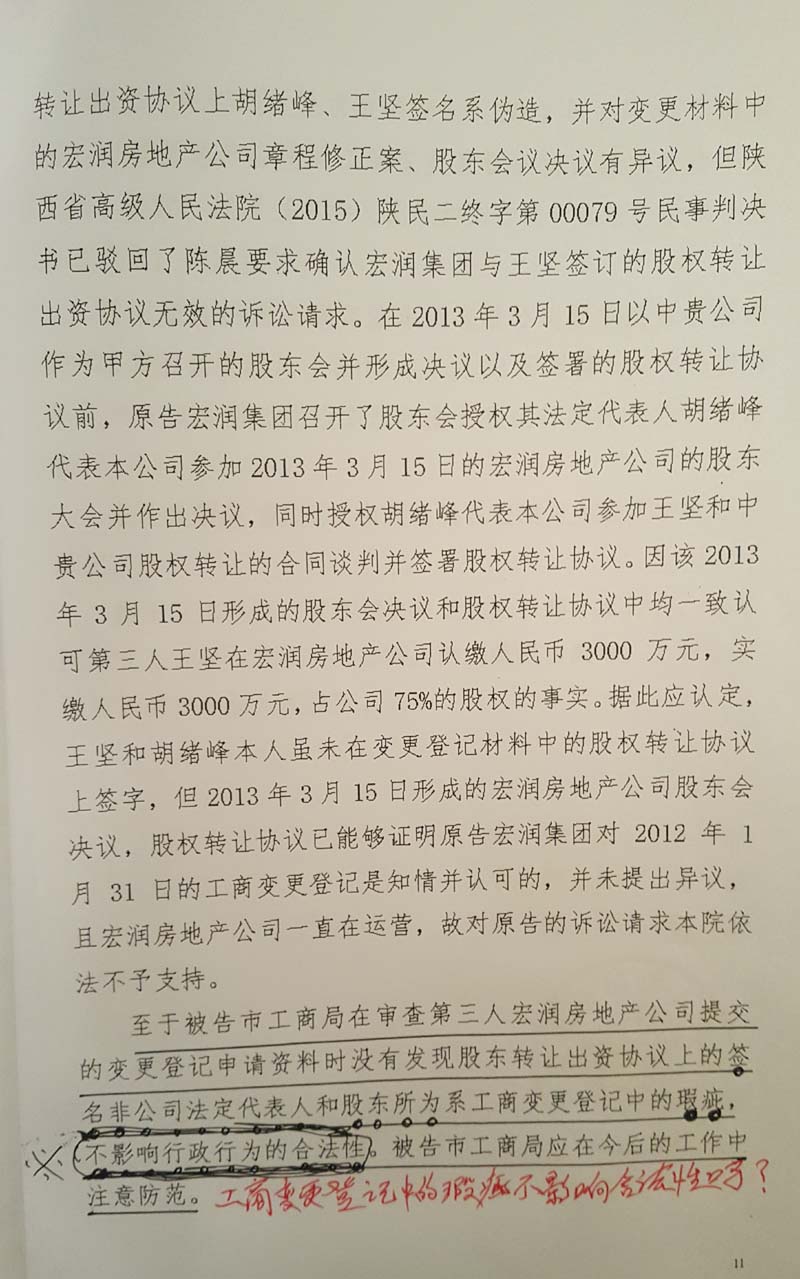 转让出资协议上胡绪峰、王坚签名系伪造，并对变更材料中
的宏润房地产公司章程修正案、股东会议决议有异议，但陕
西省高级人民法院（2015）陕民二终字第 00079 号民事判决
书已驳回了陈晨要求确认宏润集团与王坚签订的股权转让
出资协议无效的诉讼请求。在 2013 年 3 月 15 日以中贵公司
作为甲方召开的股东会并形成决议以及签署的股权转让协
议前，原告宏润集团召开了股东会授权其法定代表人胡绪峰
代表本公司参加 2013 年 3 月 15 日的宏润房地产公司的股东
大会并作出决议，同时授权胡绪峰代表本公司参加王坚和中
贵公司股权转让的合同谈判并签署股权转让协议。因该 2013
年 3 月 15 日形成的股东会决议和股权转让协议中均一致认
可第三人王坚在宏润房地产公司认缴人民币 3000 万元，实
缴人民币 3000 万元，占公司 75%的股权的事实。据此应认定，
王坚和胡绪峰本人虽未在变更登记材料中的股权转让协议
上签字，但 2013 年 3 月 15 日形成的宏润房地产公司股东会
决议，股权转让协议已能够证明原告宏润集团对 2012 年 1
月 31 日的工商变更登记是知情并认可的，并未提出异议，
且宏润房地产公司一直在运营，故对原告的诉讼请求本院依
法不予支持。
至于被告市工商局在审查第三人宏润房地产公司提交
的变更登记申请资料时没有发现股东转让出资协议上的签
名非公司法定代表人和股东所为系工商变更登记中的瑕疵，
不影响行政行为的合法性。被告市工商局应在今后的工作中
注意防范。工商变更登记中的瑕疵不影响合法性吗？
11